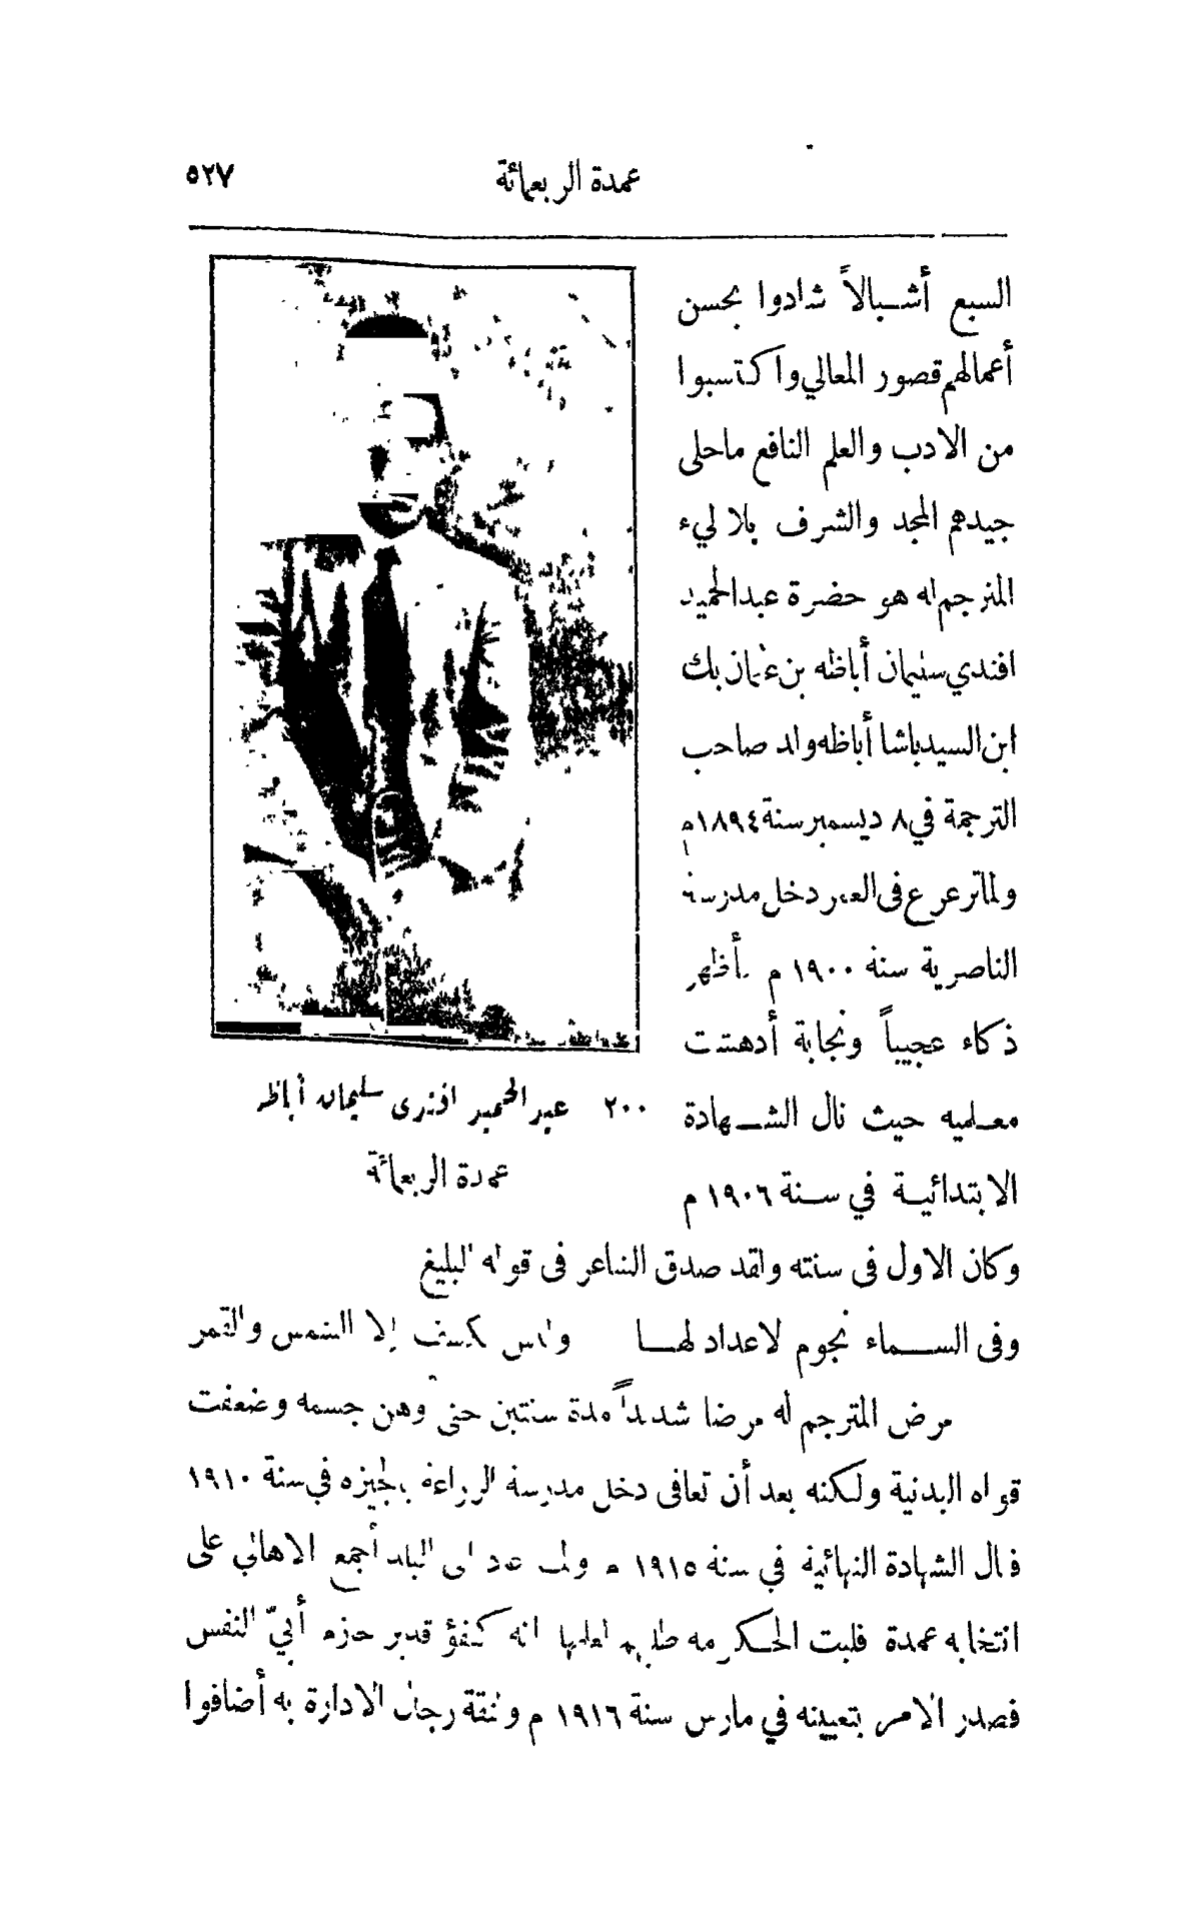 عمدة الربعمائة
٥٢٧
السبع أشبالاً شادوا بحسن
أعمالهم قصور المعالي واكتسبوا
من الادب والعلم النافع ماحلى
جيدهم المجد والشرف بلا ليء
المترجم له هو حضرة عبد الحميد
افندي سليمان أباظه بن عثمان بك
ابن السيد باشا أباظه ولد صاحب
الترجمة في ٨ ديسمبر سنة ١٨٩٤ م
ولما ترعرع فى العمر دخل مدرسة
الناصرية سنة ١٩٠٠ م فأظهر
ذكاء عجيباً ونجابة أدهشت
معلميه حيث نال الشهادة
الابتدائية في سنة ١٩٠٦ م
٢٠٠ عبد الحميد افندى سليمان أباظه
عمدة الربعمائة
وكان الاول فى سنته ولقد صدق الشاعر فى قوله البليغ
وفى السماء نجوم لاعداد لها وليس يكسف إلا الشمس والقمر
مرض المترجم له مرضا شديداً مدة سنتين حتى وهن جسمه وضعفت
قواه البدنية ولكنه بعد أن تعافى دخل مدرسة الزراعة بالجيزه في سنة ١٩١٠
فنال الشهادة النهائية في سنة ١٩١٥ م ولما عاد الى البلد أجمع الاهالي على
انتخابه عمدة فلبت الحكومه طلبهم لعلمها انه كفؤ قدير حازم أبيّ النفس
فصدر الامر بتعيينه في مارس سنة ١٩١٦ م ولثقة رجال الادارة به أضافوا